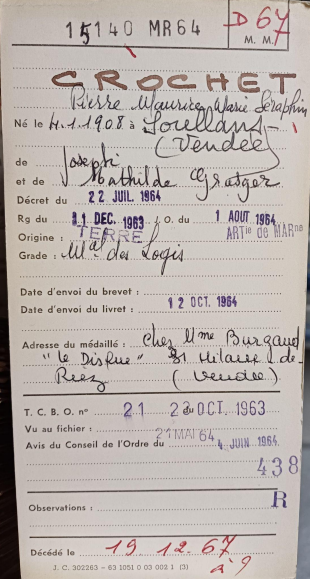 15140 MR64 D 67
M. M.
CROCHET
Pierre Maurice Marie Séraphin
Né le 4.1.1908 à Soullans
(Vendée)
de Joseph
et de Mathilde
Décret du 22 JUIL. 1964
Rg du 31 DEC. 1963 J.O. du 1 AOUT 1964
Origine : TERRE ARTie de MARne
Grade : Mal des Logis
Date d'envoi du brevet :
Date d'envoi du livret : 12 OCT. 1964
Adresse du médaillé : chez Mme Burgaud
"le " St Hilaire de
Riez (Vendée)
T. C. B. O. n° 21 du 23 OCT. 1963
Vu au fichier : 21 MAI 64
Avis du Conseil de l'Ordre du 4 JUIN 1964
438
Observations : R
Décédé le 19.12.67
à ?
J. C. 302263 - 63 1051 0 03 002 1 (3)